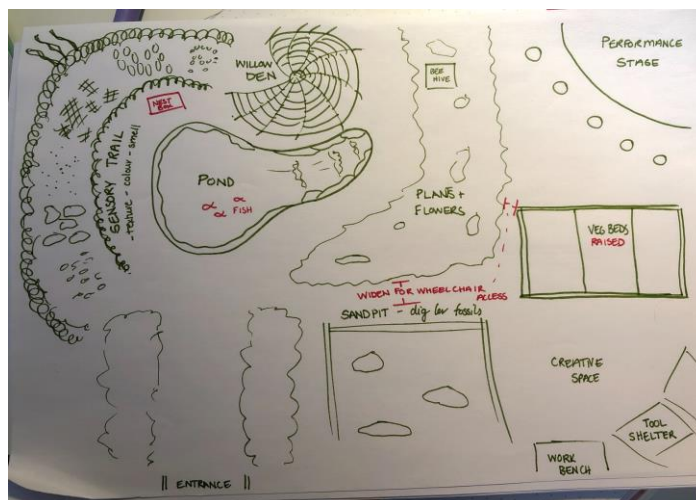 WILLOW
DEN
BEE
HIVE
PERFORMANCE
STAGE
NEST
BOX
SENSORY TRAIL
- texture - colour - smell
POND
FISH
PLANTS +
FLOWERS
VEG BEDS
RAISED
WIDEN FOR WHEELCHAIR
ACCESS
SANDPIT - dig for fossils
CREATIVE
SPACE
TOOL
SHELTER
WORK
BENCH
ENTRANCE